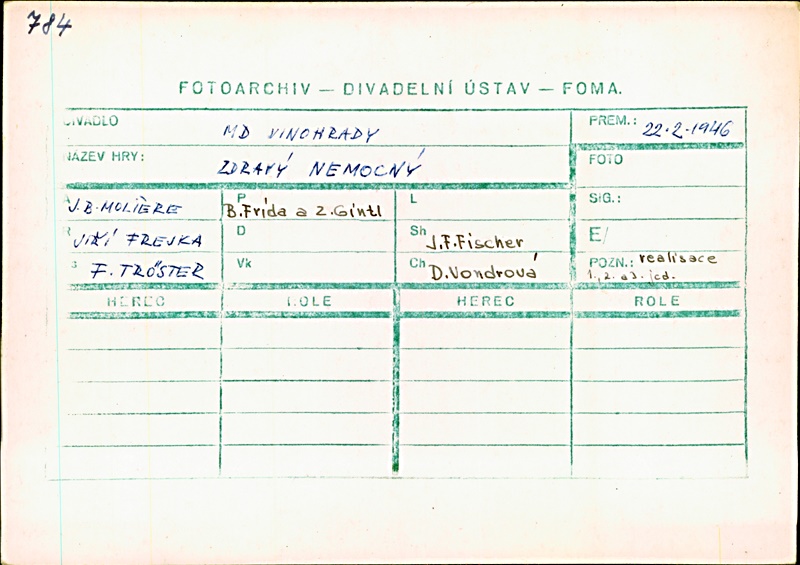 784
FOTOARCHIV — DIVADELNÍ ÚSTAV — FOMA.
DIVADLO MD VINOHRADY PREM.: 22.2.1946
NÁZEV HRY: ZDRAVÝ NEMOCNÝ FOTO
A J.B.MOLIÈRE P B.Frída a Z.Gintl L SIG.:
R JIŘÍ FREJKA D Sh J.F.Fischer E/
S F. TRÖSTER Vk Ch D.Vondrová POZN.: realisace
1., 2. a 3. jed.
HEREC ROLE HEREC ROLE